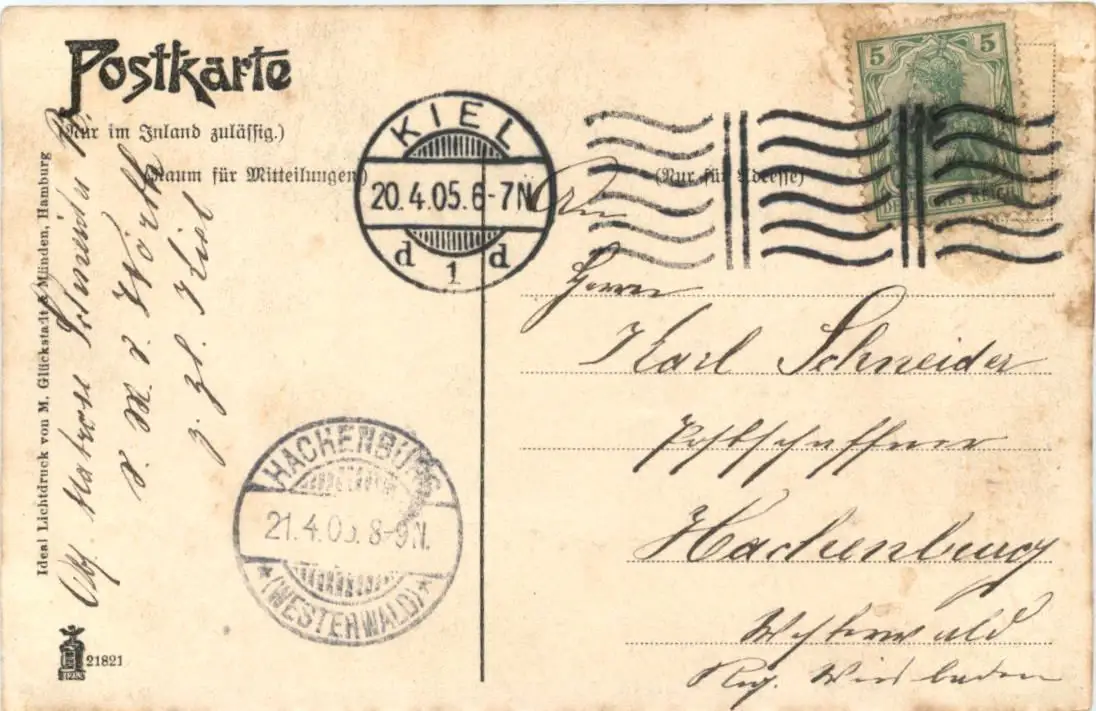 Postkarte
(Nur im Inland zulässig.)
(Raum für Mitteilungen)
(Nur für Adresse)
KIEL
20.4.05.6-7N
d 1 d
5 5
DEUTSCHES REICH
Ideal Lichtdruck von M. Glückstadt & Münden, Hamburg
21821
Abs. Matrose Schneider
S. M. S. Wörth
z. Zt. Kiel
HACHENBURG
21.4.05. 8-9N.
(WESTERWALD)
An
Herrn
Karl Schneider
Postschaffner
Hachenburg
Westerwald
Reg. Wiesbaden